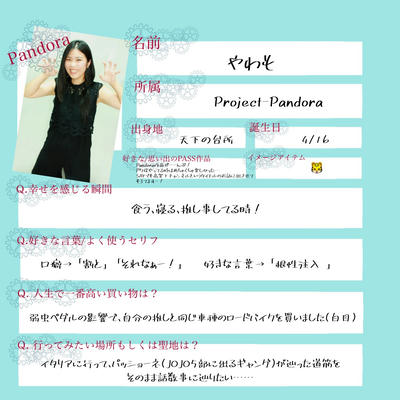 Pandora
名前
やわそ
所属
Project-Pandora
出身地
天下の台所
誕生日
4/16
好きな/思い出のPASS作品
イメージアイテム
Q.幸せを感じる瞬間
食う、寝る、推し事してる時！
Q.好きな言葉/よく使うセリフ
口癖→「割と」「それなぁー！」 好きな言葉→「根性注入」
Q. 人生で一番高い買い物は？
弱虫ペダルの影響で、自分の推しと同じ車種のロードバイクを買いました(白目)
Q. 行ってみたい場所もしくは聖地は？
イタリアに行って、パッショーネ(JOJO5部に出るギャング)が辿った道筋を
そのまま話数事に辿りたい……